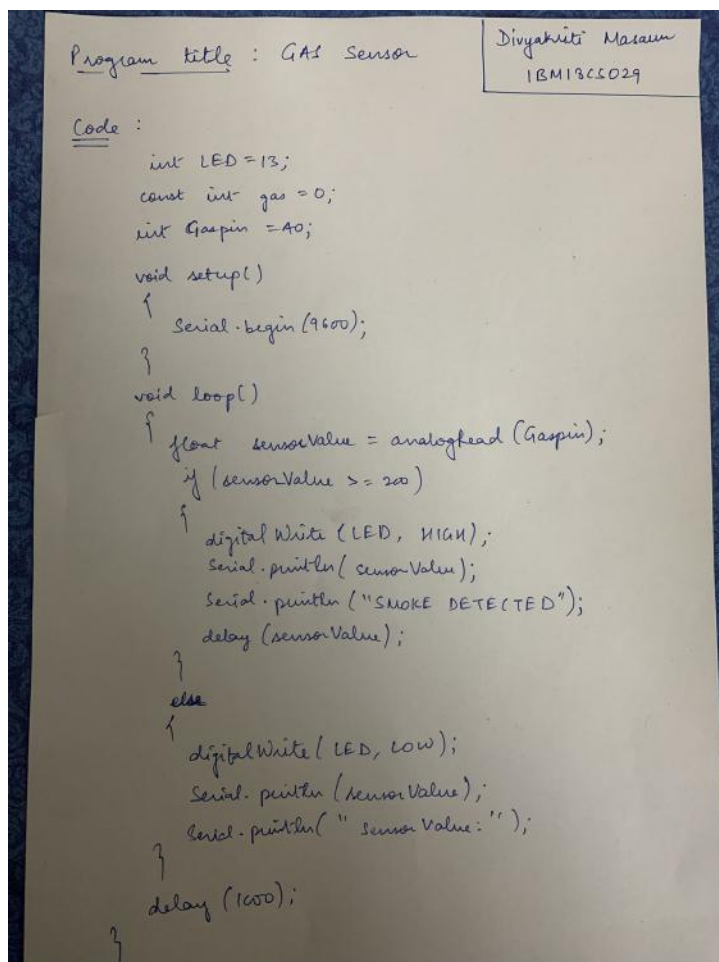 Program title : GAS Sensor
Divyakriti Masaun
1BM13CS029
Code :
int LED = 13;
const int gas = 0;
int Gaspin = A0;
void setup()
{
Serial.begin (9600);
}
void loop()
{
float sensorValue = analogRead (Gaspin);
if (sensorValue >= 200)
{
digitalWrite (LED, HIGH);
Serial.println( sensorValue);
Serial.println ("SMOKE DETECTED");
delay (sensorValue);
}
else
{
digitalWrite( LED, LOW);
Serial.println (sensorValue);
Serial.println( " sensorValue: ");
}
delay (1000);
}